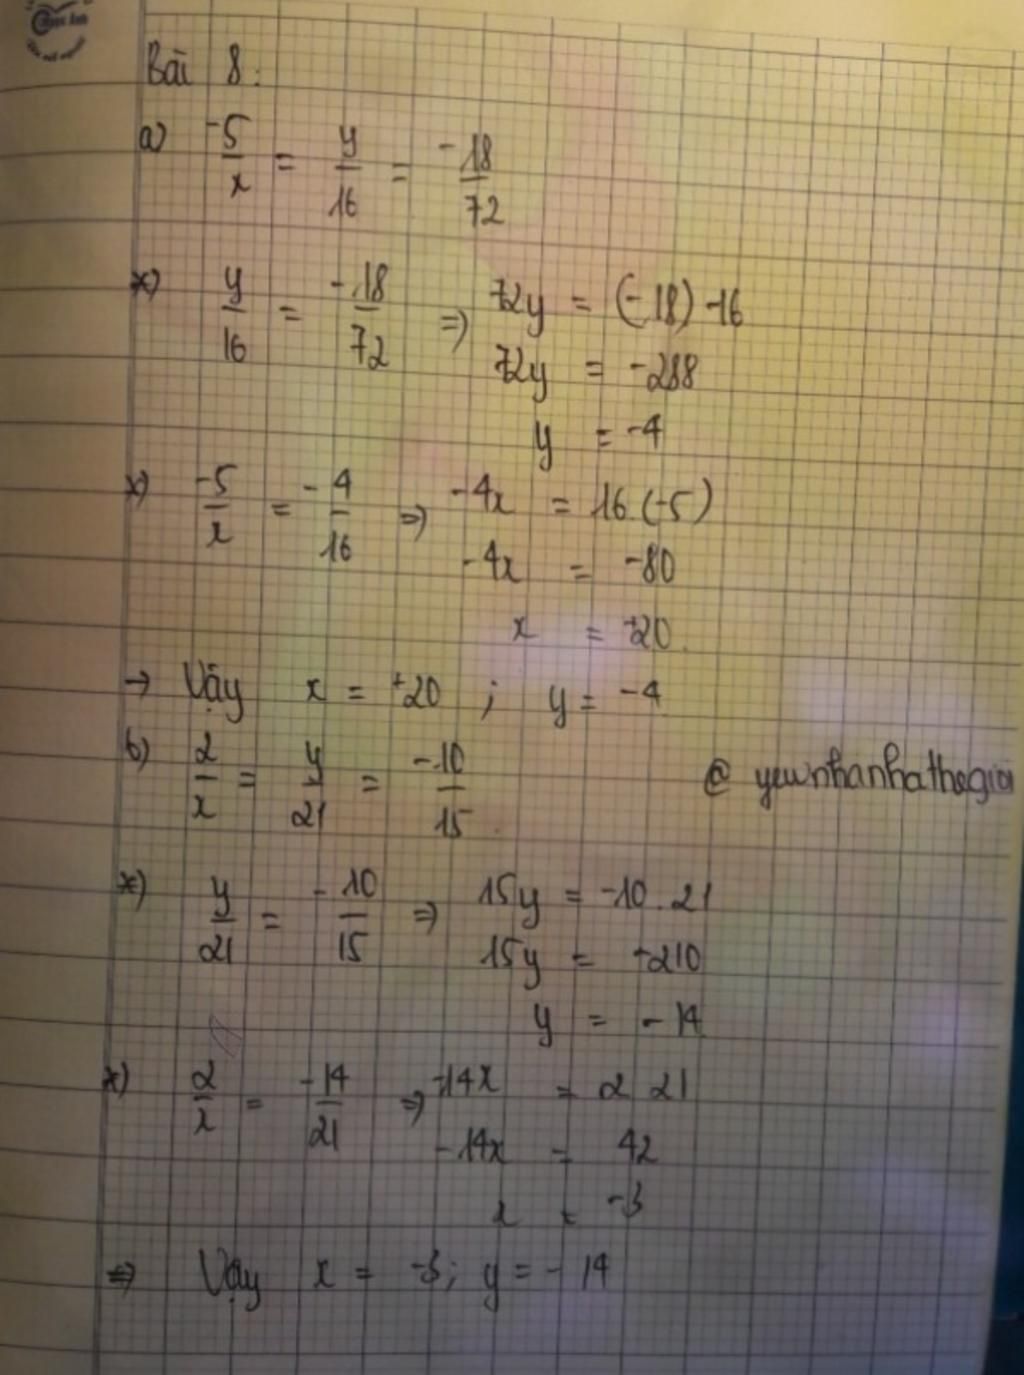 Bài 8:
a) -5/x = y/16 = -18/72
*) y/16 = -18/72 => 72y = (-18).16
72y = -288
y = -4
*) -5/x = -4/16 => -4x = 16.(-5)
-4x = -80
x = +20
→ Vậy x = +20 ; y = -4
b) 2/x = y/21 = -10/15
*) y/21 = -10/15 => 15y = -10.21
15y = -210
y = -14
*) 2/x = -14/21 => -14x = 2.21
-14x = 42
x = -3
=> Vậy x = -3; y = -14